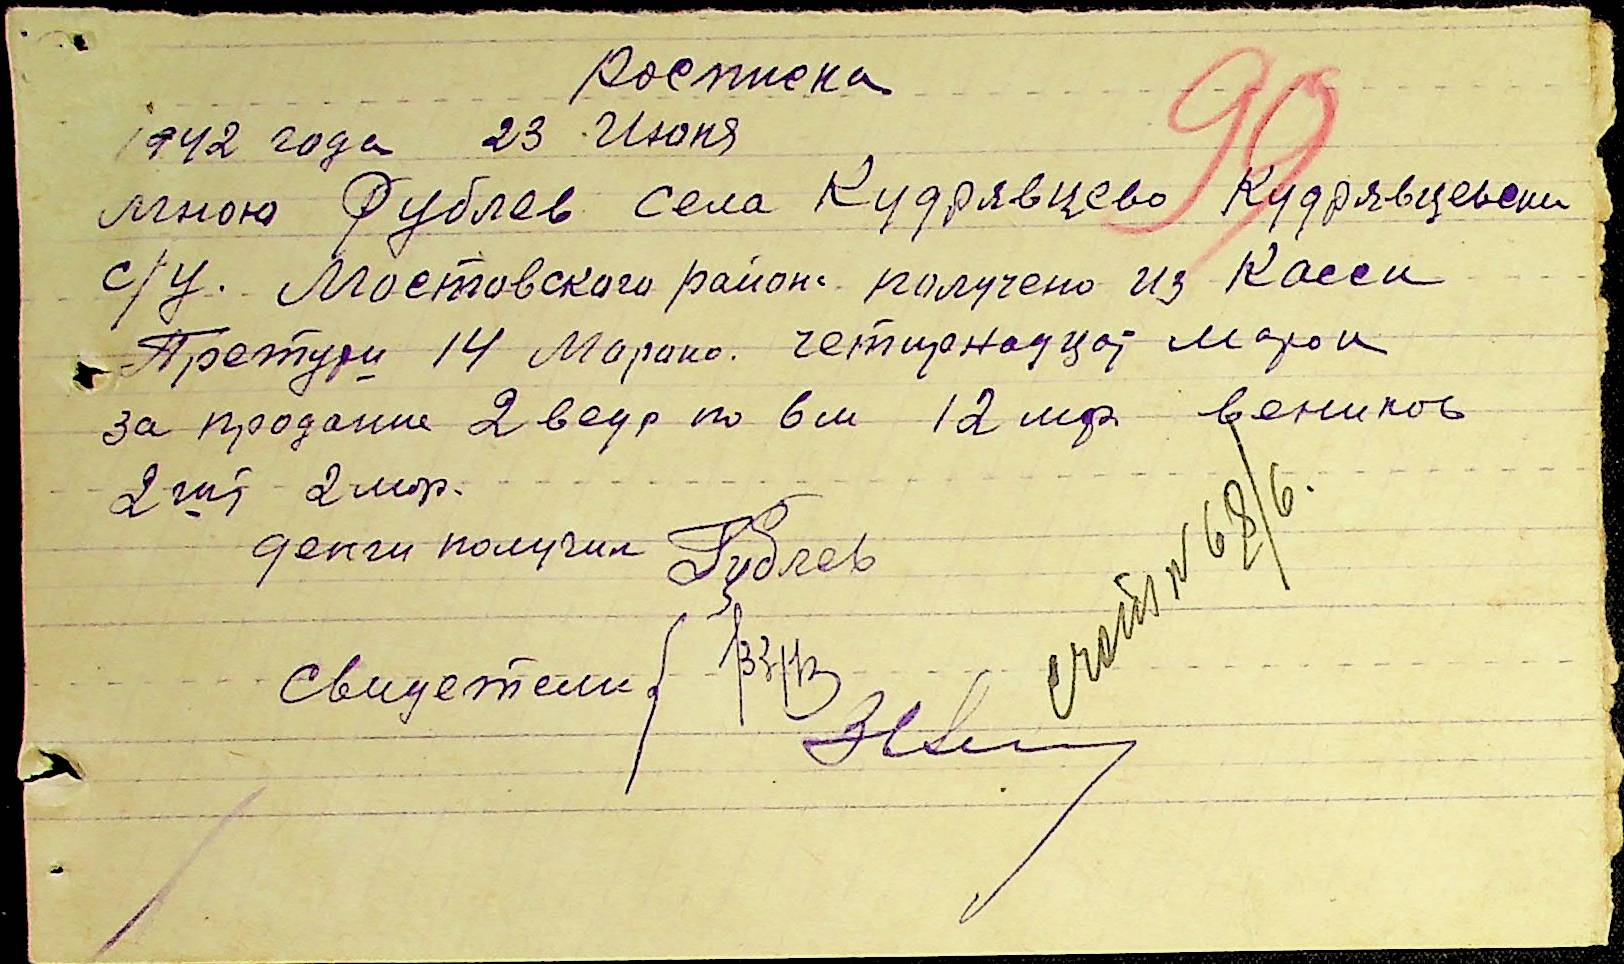 Росписка
99
1942 года 23 Июня
мною Рублев села Кудрявцево Кудрявцевски
с/у. Мостовского район. получено из Касси
Претури 14 Марано. четирнадцат марок
за продание 2 ведр по 6 м 12 мар веников
2 шт 2 мар.
денги получил Рублев
Свидетели
счот N 68/6.